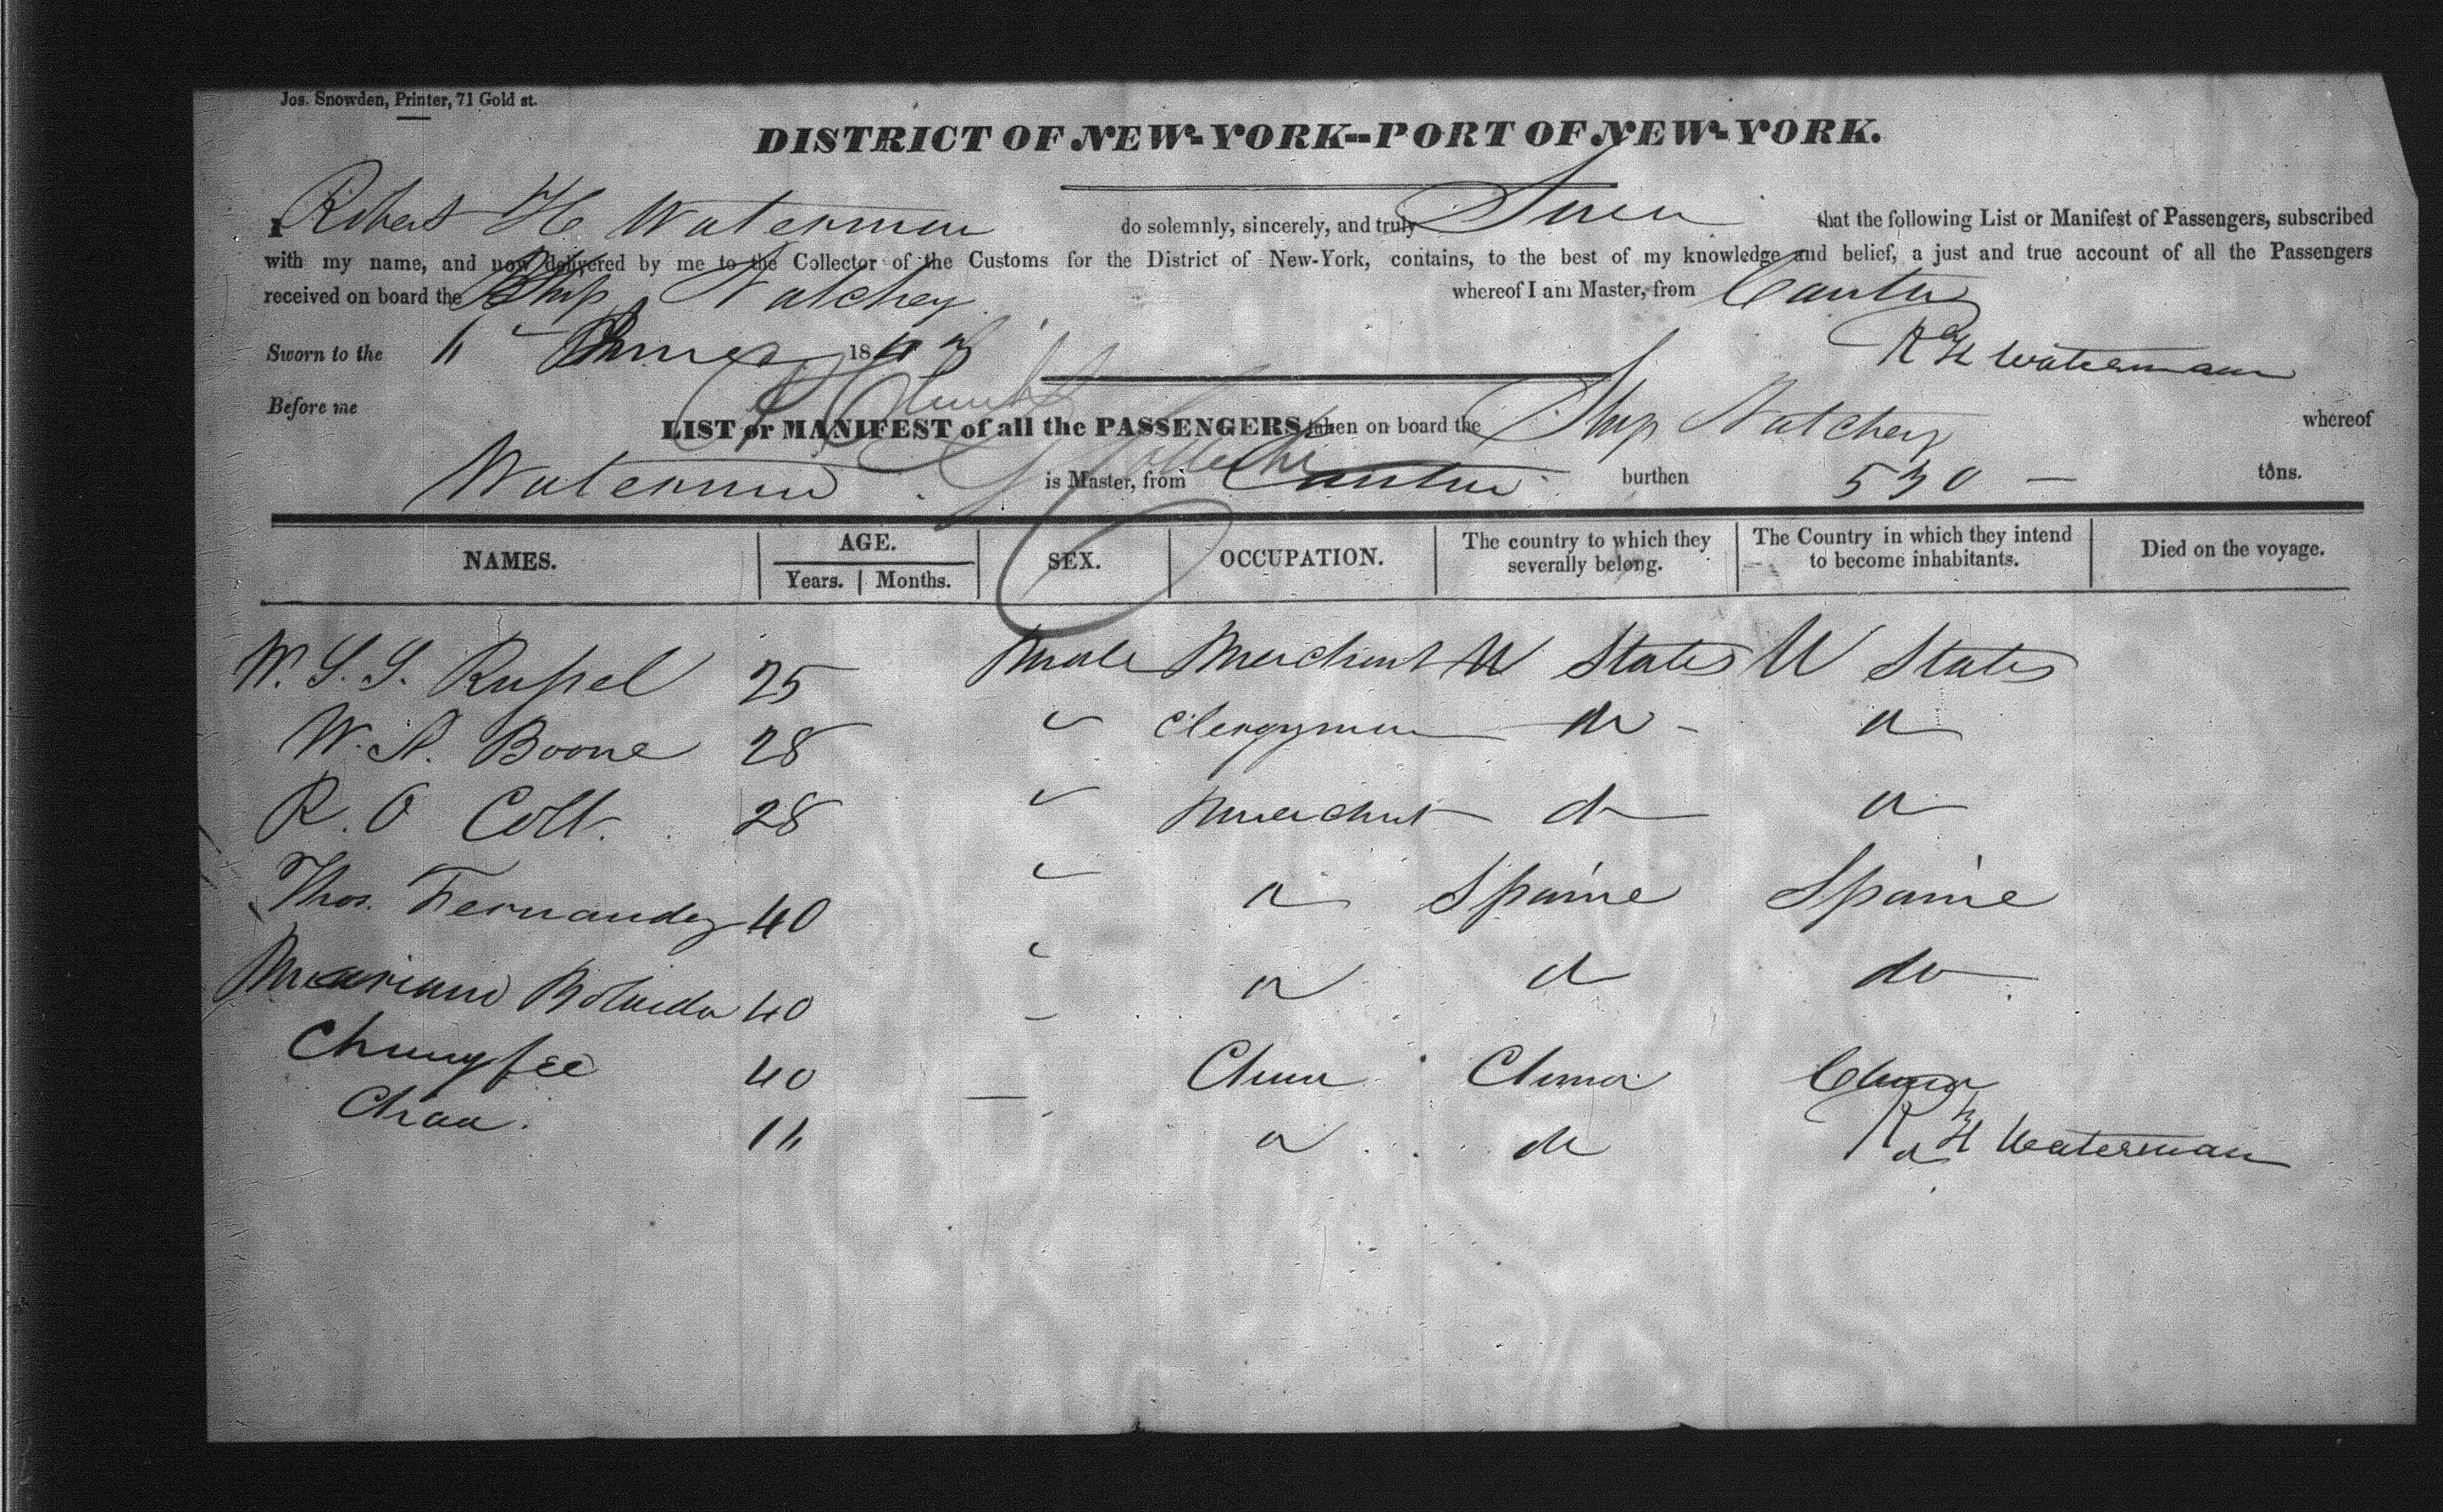 Jos. Snowden, Printer, 71 Gold st.
DISTRICT OF NEW-YORK--PORT OF NEW-YORK.
I Robert H Waterman do solemnly, sincerely, and truly Swear that the following List or Manifest of Passengers, subscribed
with my name, and now delivered by me to the Collector of the Customs for the District of New-York, contains, to the best of my knowledge and belief, a just and true account of all the Passengers
received on board the Ship Natchez whereof I am Master, from Canton
Sworn to the 1843 R H Waterman
Before me
LIST or MANIFEST of all the PASSENGERS taken on board the Ship Natchez whereof
Waterman is Master, from Canton burthen 530 — tons.
NAMES. AGE. SEX. OCCUPATION. The country to which they severally belong. The Country in which they intend to become inhabitants. Died on the voyage.
Years. Months.
W. S. S. Russel 25 Male Merchant U States U States
W. A. Boone 28 " Clergyman do - do
R. O Colt 28 " Merchant do do
Thos. Fernandez 40 " do Spaine Spaine
Mariano 40 " do do do
Chungfee 40 China China China
Chaa 14 do do do
R H Waterman